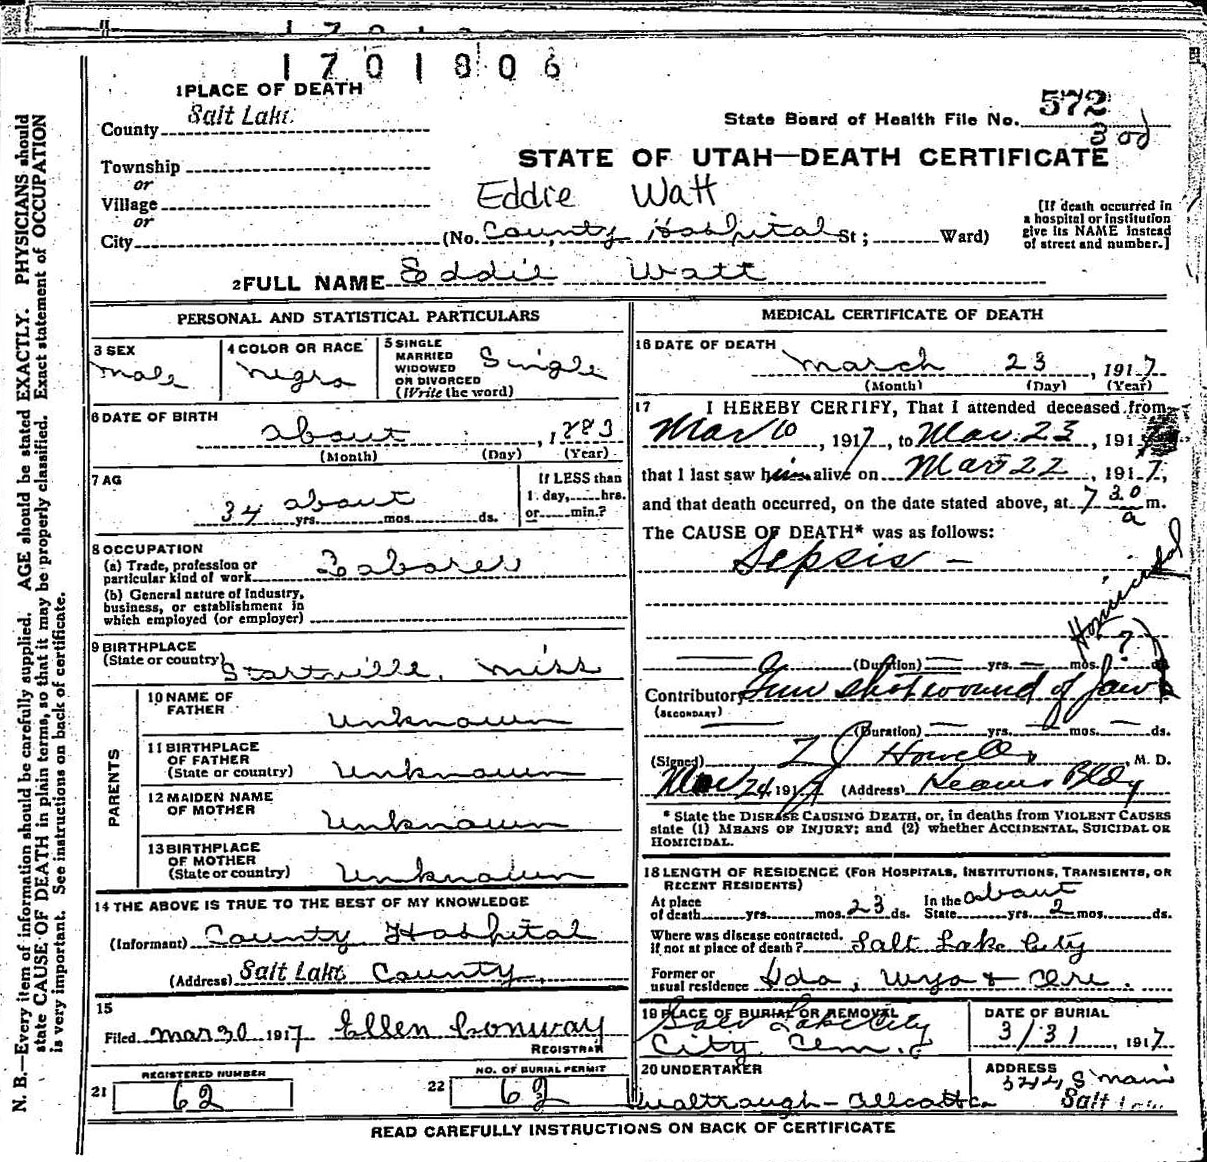 1701806
1 PLACE OF DEATH
County Salt Lake
State Board of Health File No. 572
Township
or
Village
or
City
STATE OF UTAH—DEATH CERTIFICATE
Eddie Watt
(No. County Hospital St ; Ward)
[If death occurred in
a hospital or institution
give its NAME instead
of street and number.]
2 FULL NAME Eddie Watt
PERSONAL AND STATISTICAL PARTICULARS
3 SEX
Male
4 COLOR OR RACE
Negro
5 SINGLE
MARRIED
WIDOWED
OR DIVORCED
(Write the word)
Single
6 DATE OF BIRTH
about , 1883
(Month) (Day) (Year)
7 AG
34 about
yrs. mos. ds.
If LESS than
1 day, hrs.
or min.?
8 OCCUPATION
(a) Trade, profession or
particular kind of work Laborer
(b) General nature of industry,
business, or establishment in
which employed (or employer)
9 BIRTHPLACE
(State or country) Startville, Miss
PARENTS
10 NAME OF
FATHER Unknown
11 BIRTHPLACE
OF FATHER
(State or country) Unknown
12 MAIDEN NAME
OF MOTHER Unknown
13 BIRTHPLACE
OF MOTHER
(State or country) Unknown
14 THE ABOVE IS TRUE TO THE BEST OF MY KNOWLEDGE
(Informant) County Hospital
(Address) Salt Lake County
15
Filed Mar 30 1917 Ellen Conway
REGISTRAR
21 REGISTERED NUMBER
62
22 NO. OF BURIAL PERMIT
62
MEDICAL CERTIFICATE OF DEATH
16 DATE OF DEATH
March 23 , 1917
(Month) (Day) (Year)
17 I HEREBY CERTIFY, That I attended deceased from
Mar 10 , 1917, to Mar. 23 , 191
that I last saw him alive on Mar 22 , 1917,
and that death occurred, on the date stated above, at 7 30 a m.
The CAUSE OF DEATH* was as follows:
Sepsis —
Homicidal
?
(Duration) yrs. mos. ds.
Contributory Gun shot wound of jaw
(SECONDARY)
(Duration) yrs. mos. ds.
(Signed) , M. D.
Mar 24 1917 (Address) Kearns Bldg
* State the DISEASE CAUSING DEATH, or, in deaths from VIOLENT CAUSES
state (1) MEANS OF INJURY; and (2) whether ACCIDENTAL, SUICIDAL OR
HOMICIDAL.
18 LENGTH OF RESIDENCE (FOR HOSPITALS, INSTITUTIONS, TRANSIENTS, OR
RECENT RESIDENTS)
At place
of death yrs. mos. 23 ds.
In the about
State yrs. 2 mos. ds.
Where was disease contracted.
if not at place of death? Salt Lake City
Former or
usual residence Ida, Wyo +
19 PLACE OF BURIAL OR REMOVAL
Salt Lake City
City Cem.
DATE OF BURIAL
3/31 , 1917
20 UNDERTAKER
ADDRESS
S Main
Salt Lake
READ CAREFULLY INSTRUCTIONS ON BACK OF CERTIFICATE
N. B.—Every item of information should be carefully supplied. AGE should be stated EXACTLY. PHYSICIANS should
state CAUSE OF DEATH in plain terms, so that it may be properly classified. Exact statement of OCCUPATION
is very important. See instructions on back of certificate.